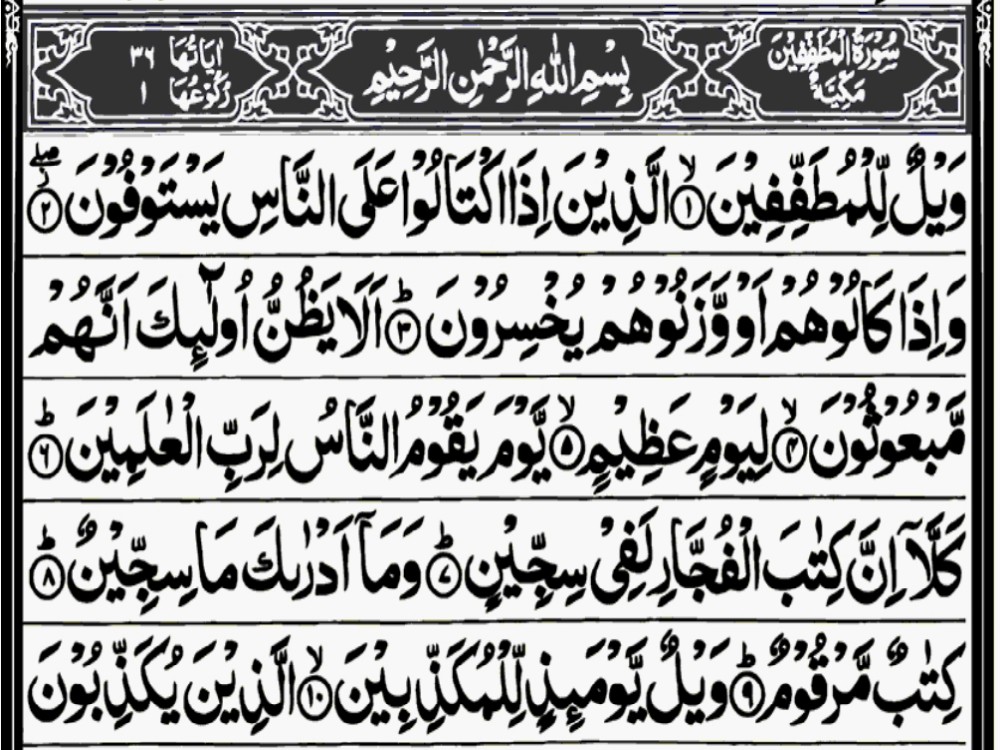 سُوۡرَةُ الۡمُطَفِّفِيۡنَ مَكِّيَّةٌ
بِسۡمِ اللّٰهِ الرَّحۡمٰنِ الرَّحِيۡمِ
اٰيَاتُهَا ٣٦ رُكُوۡعُهَا ١
وَيۡلٌ لِّلۡمُطَفِّفِيۡنَ ۙ‏﴿۱﴾ الَّذِيۡنَ اِذَا اكۡتَالُوۡا عَلَى النَّاسِ يَسۡتَوۡفُوۡنَ ۖ‏﴿۲﴾
وَاِذَا كَالُوۡهُمۡ اَوْ وَّزَنُوۡهُمۡ يُخۡسِرُوۡنَ ؕ‏﴿۳﴾ اَلَا يَظُنُّ اُولٰٓٮِٕكَ اَنَّهُمۡ
مَّبۡعُوۡثُوۡنَ ۙ‏﴿۴﴾ لِيَوۡمٍ عَظِيۡمٍ ۙ‏﴿۵﴾ يَّوۡمَ يَقُوۡمُ النَّاسُ لِرَبِّ الۡعٰلَمِيۡنَ ؕ‏﴿۶﴾
كَلَّاۤ اِنَّ كِتٰبَ الۡفُجَّارِ لَفِىۡ سِجِّيۡنٍ ؕ‏﴿۷﴾ وَمَاۤ اَدۡرٰٮكَ مَا سِجِّيۡنٌ ؕ‏﴿۸﴾
كِتٰبٌ مَّرۡقُوۡمٌ ؕ‏﴿۹﴾ وَيۡلٌ يَّوۡمَٮِٕذٍ لِّلۡمُكَذِّبِيۡنَ ۙ‏﴿۱۰﴾ الَّذِيۡنَ يُكَذِّبُوۡنَ